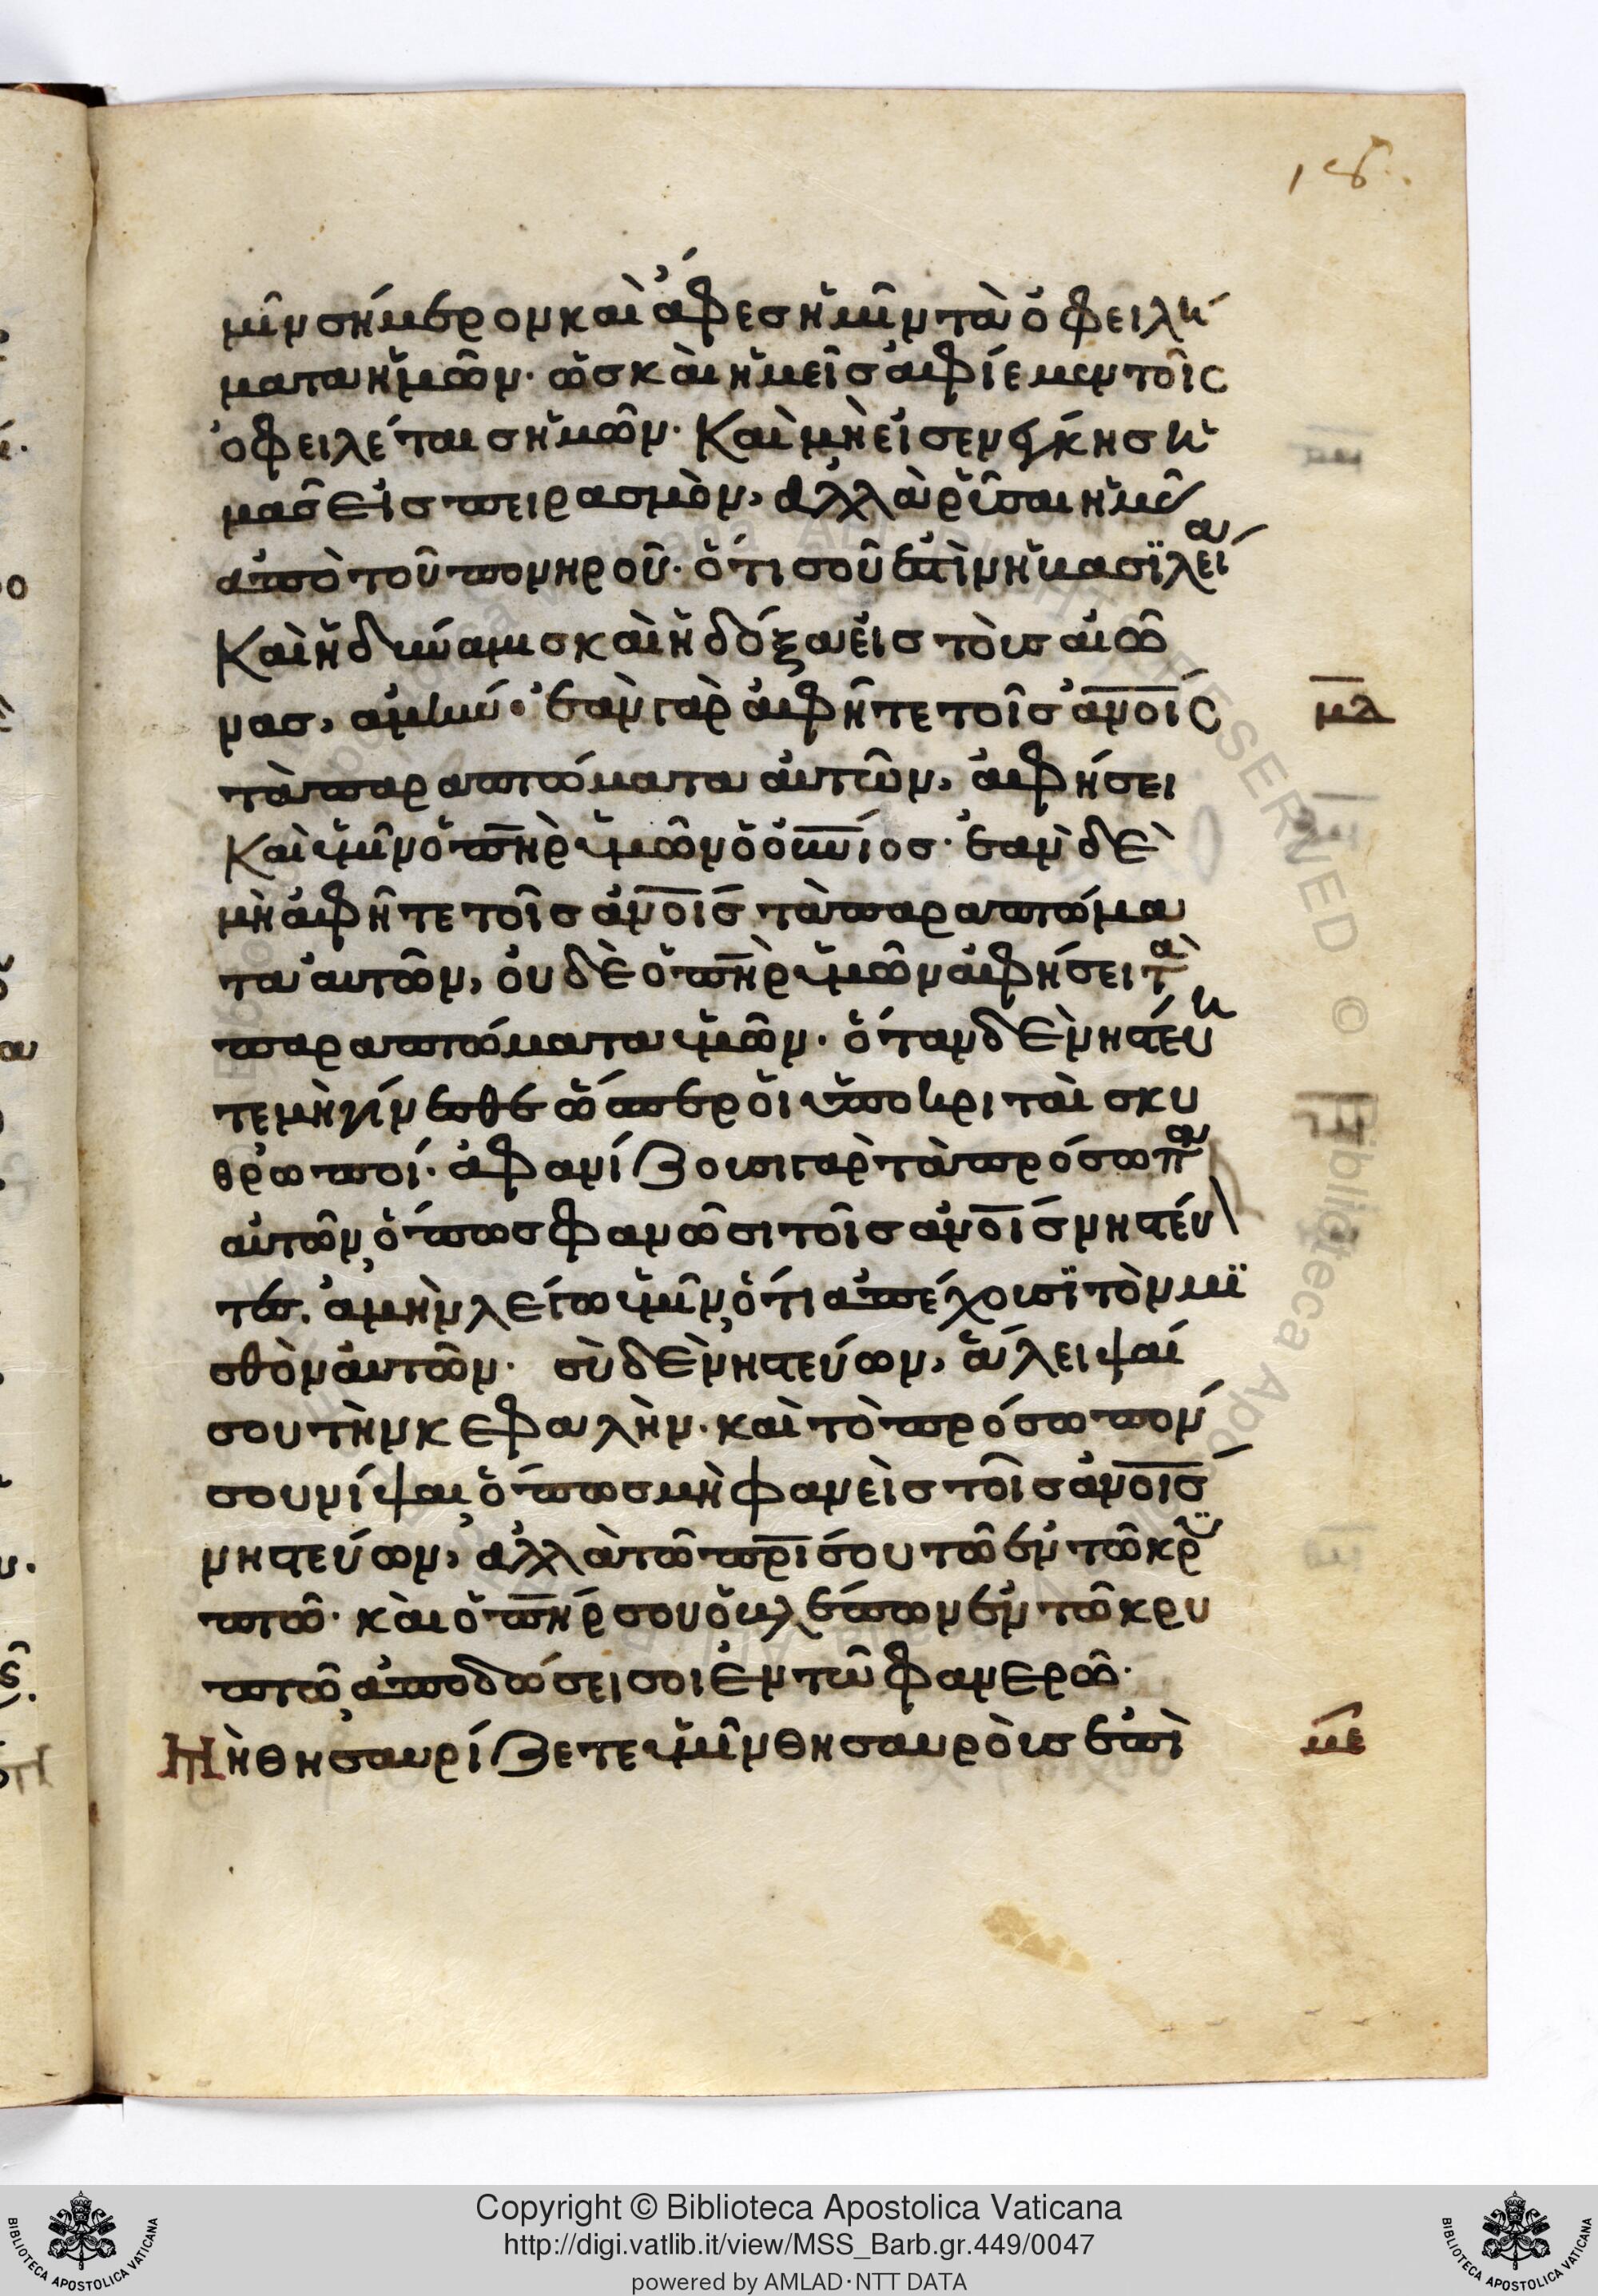 18.
μῖν σήμερον καὶ ἄφες ἡμῖν τὰ ὀφειλή
ματα ἡμῶν· ὡς καὶ ἡμεῖς ἀφίεμεν τοῖς
ὀφειλέταις ἡμῶν· Καὶ μὴ εἰσενέγκῃς ἡ
μᾶς εἰς πειρασμὸν, ἀλλὰ ῥῦσαι ἡμᾶς
ἀπὸ τοῦ πονηροῦ· ὅτι σοῦ ἐστὶν ἡ βασϊλεία
Καὶ ἡ δύναμις καὶ ἡ δόξα εἰς τοὺς αἰῶ
νας, ἀμήν· ἐὰν γὰρ ἀφῆτε τοῖς ἀν̅ο̅ι̅ς
μδ
τὰ παραπτώματα αὐτῶν, ἀφήσει
Καὶ ὑμῖν ὁ π̅η̅ρ ὑμῶν ὁ ο̅υ̅ν̅ιος· ἐὰν δὲ
μὴ ἀφῆτε τοῖς ἀν̅ο̅ι̅ς τὰ παραπτώμα
τα αὐτῶν, οὐδὲ ὁ π̅η̅ρ ὑμῶν ἀφήσει τὰ
παραπτώματα ὑμῶν· ὅταν δὲ νηστεύη
τε μὴ γίνεσθε ὥσπερ οἱ ὑποκριταὶ σκυ
θρωποί· ἀφανίζουσι γὰρ τὰ πρόσωπα
αὐτῶν, ὅπως φανῶσι τοῖς ἀν̅ο̅ι̅ς νηστεύ
τες. ἀμὴν λέγω ὑμῖν, ὅτι ἀπέχουσϊ τὸν μϊ
σθὸν αὐτῶν· σὺ δὲ νηστεύων, ἄλειψαί
σου τὴν κεφαλὴν· καὶ τὸ πρόσωπόν
σου νίψαι, ὅπως μὴ φανεὶς τοῖς ἀν̅ο̅ι̅ς
νηστεύων, ἀλλὰ τῶ π̅ρ̅ι σου τῶ ἐν τῶ κρϋ
πτῶ· καὶ ὁ π̅η̅ρ σου ὁ βλέπων ἐν τῶ κρυ
πτῶ, ἀποδώσει σοι ἐν τῶ φανερῶ·
Μὴ θησαυρίζετε ὑμῖν θησαυροὺς ἐπὶ
με
Copyright © Biblioteca Apostolica Vaticana
http://digi.vatlib.it/view/MSS_Barb.gr.449/0047
powered by AMLAD·NTT DATA
BIBLIOTECA APOSTOLICA VATICANA
BIBLIOTECA APOSTOLICA VATICANA